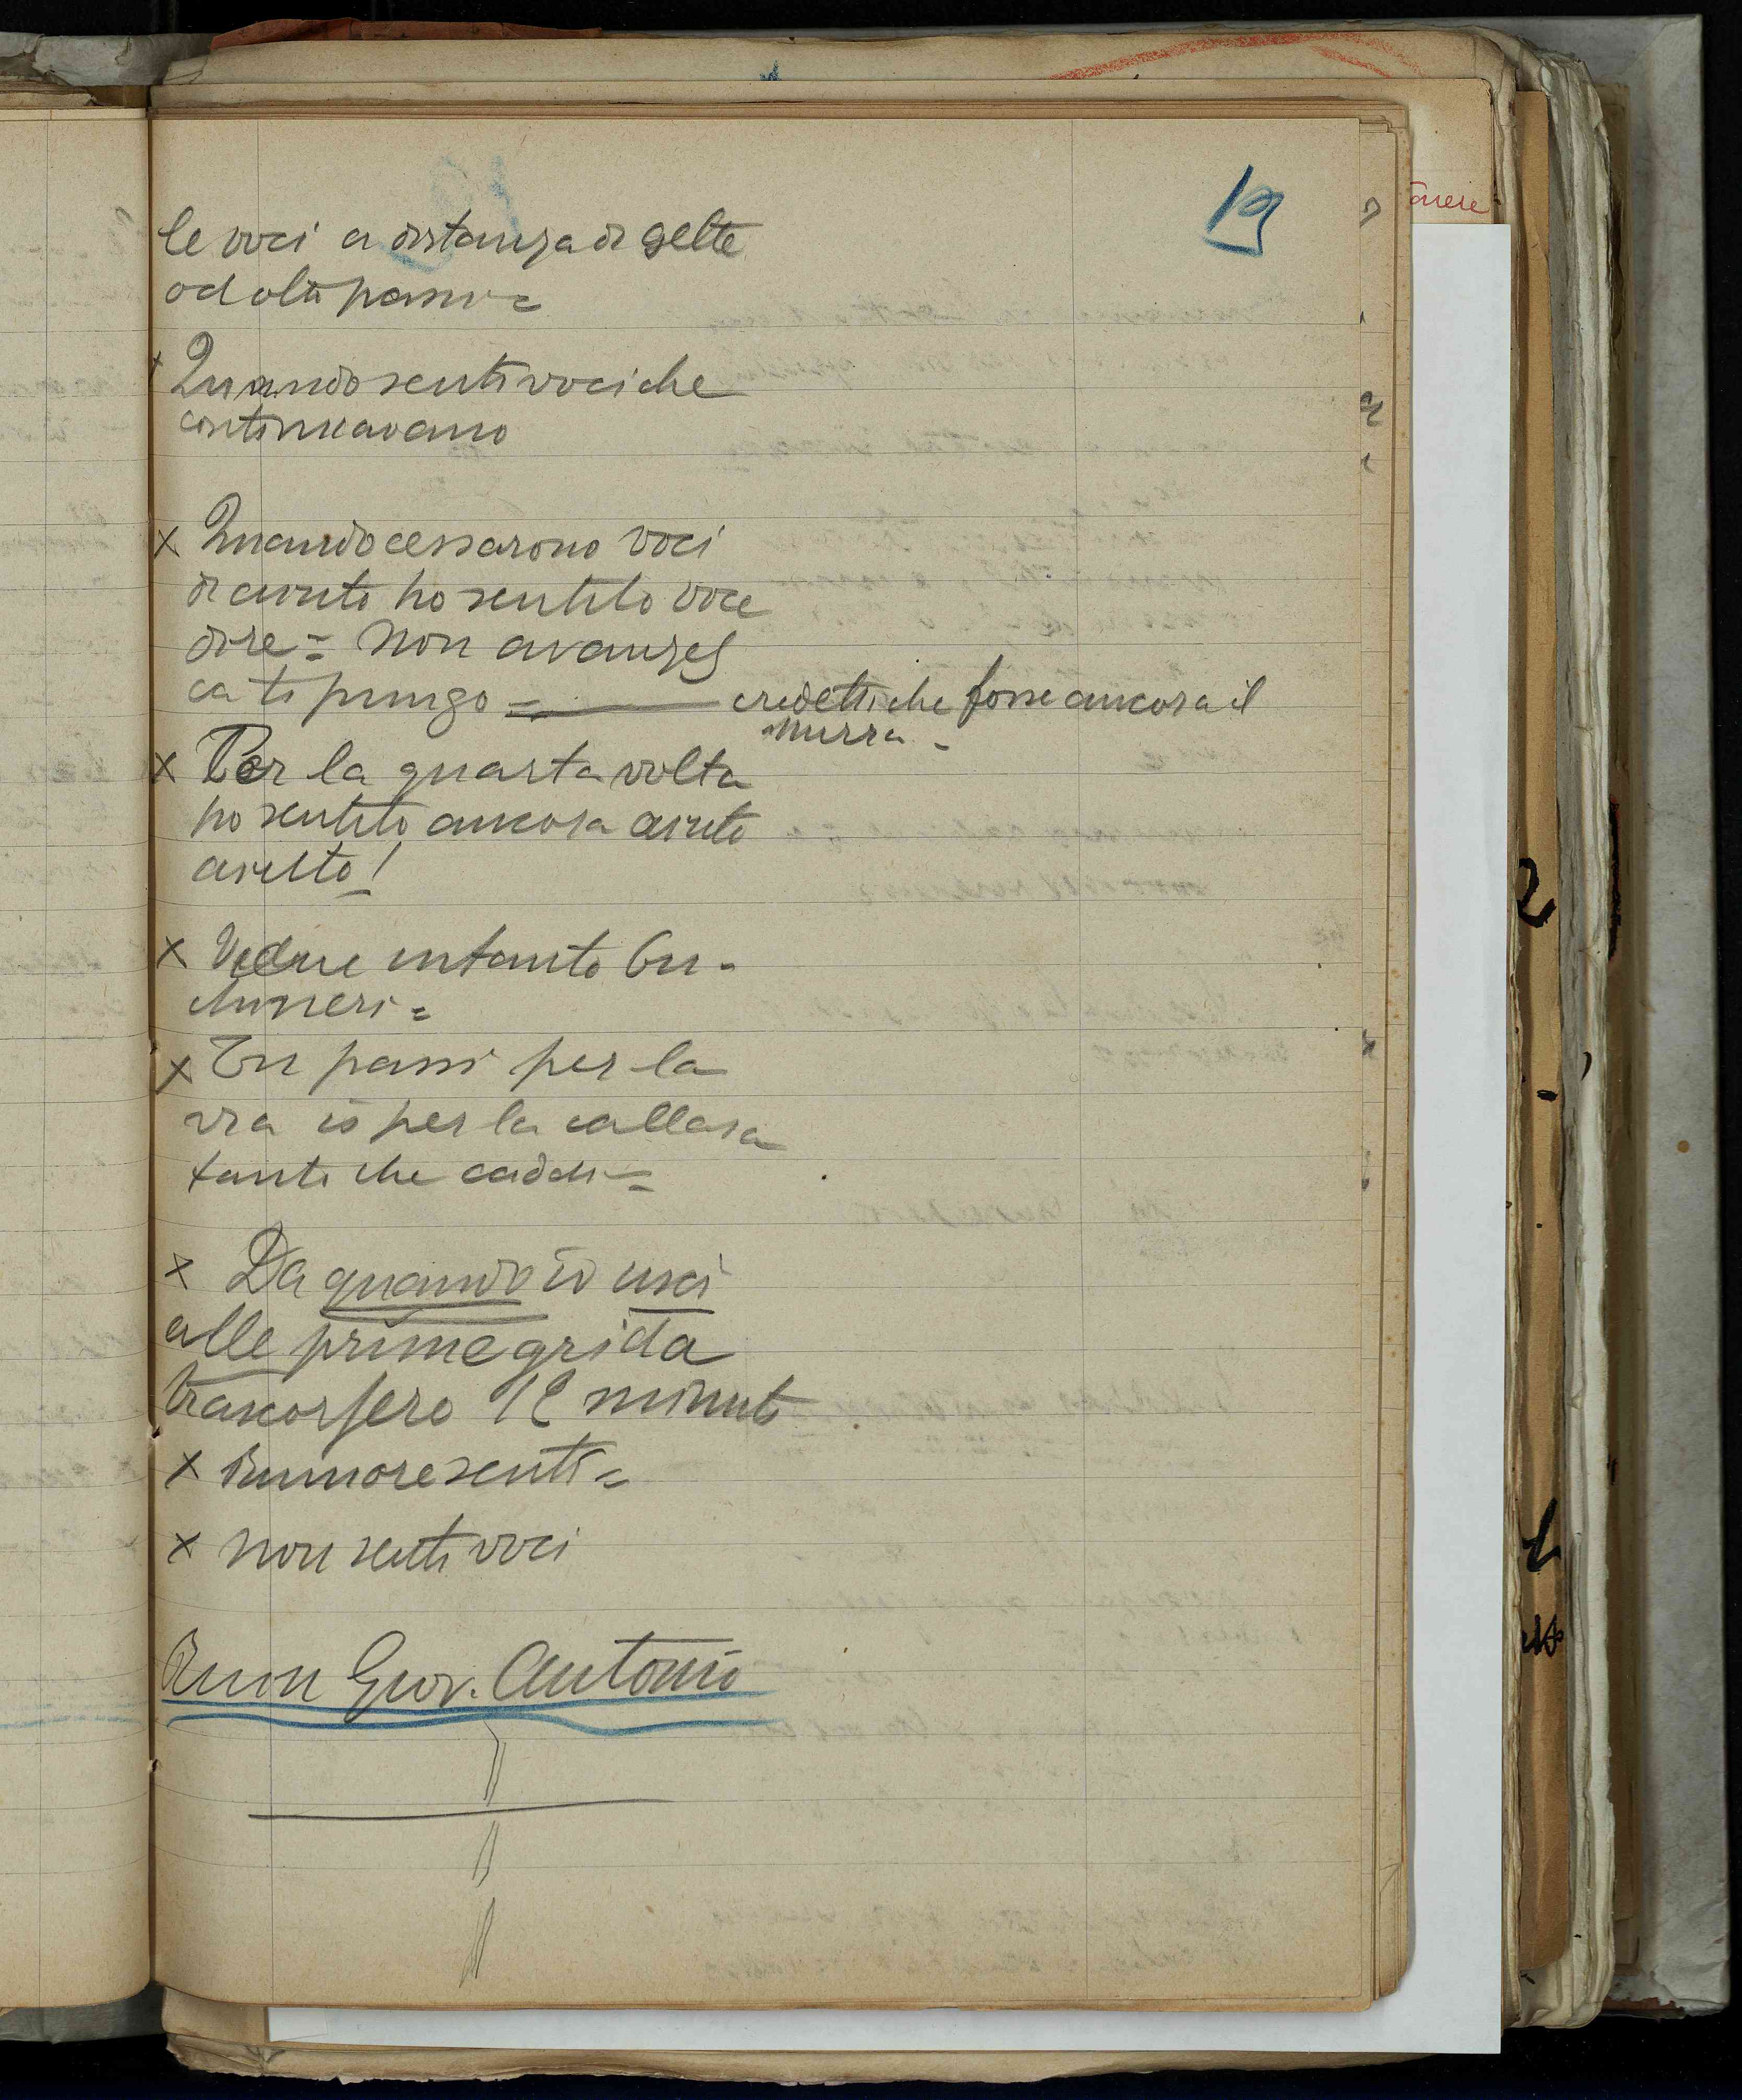 19
le voci a distanza di sette
od otto passi =
x Quando sentì voci che
continuavano
x Quando cessarono voci
di aiuto ho sentito voce
dire = non avanzes
ca ti pungo = credetti che fosse ancora il
Murra -
x Per la quarta volta
ho sentito ancora aiuto
aiuto!
x Vedere intanto Cu-
=
x Tu passi per la
via io per la callara
tanto che caddi =
x Da quando io uscì
alle prime grida
trascorsero 12 minuti
x Rumore sentì =
x non sentì voci
Giov. Antonio